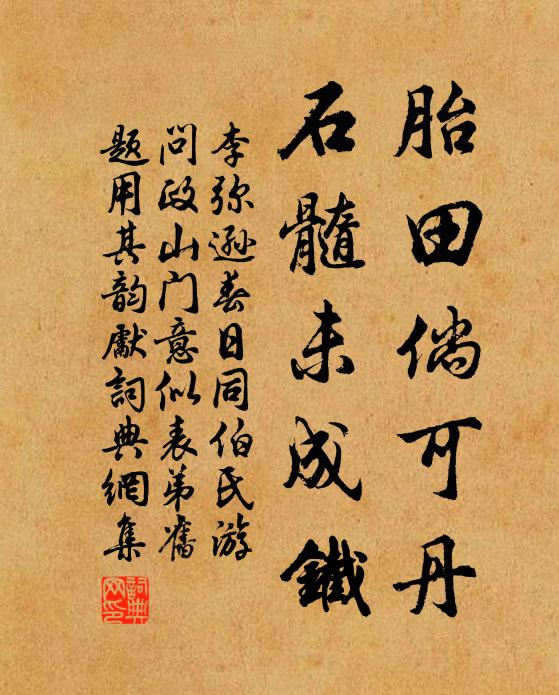 胎田倘可丹
石髓未成鐵
李弥遜春日同伯氏游
问政山门意似表弟舊
题用其韵獻詞典網集
詞典
网印